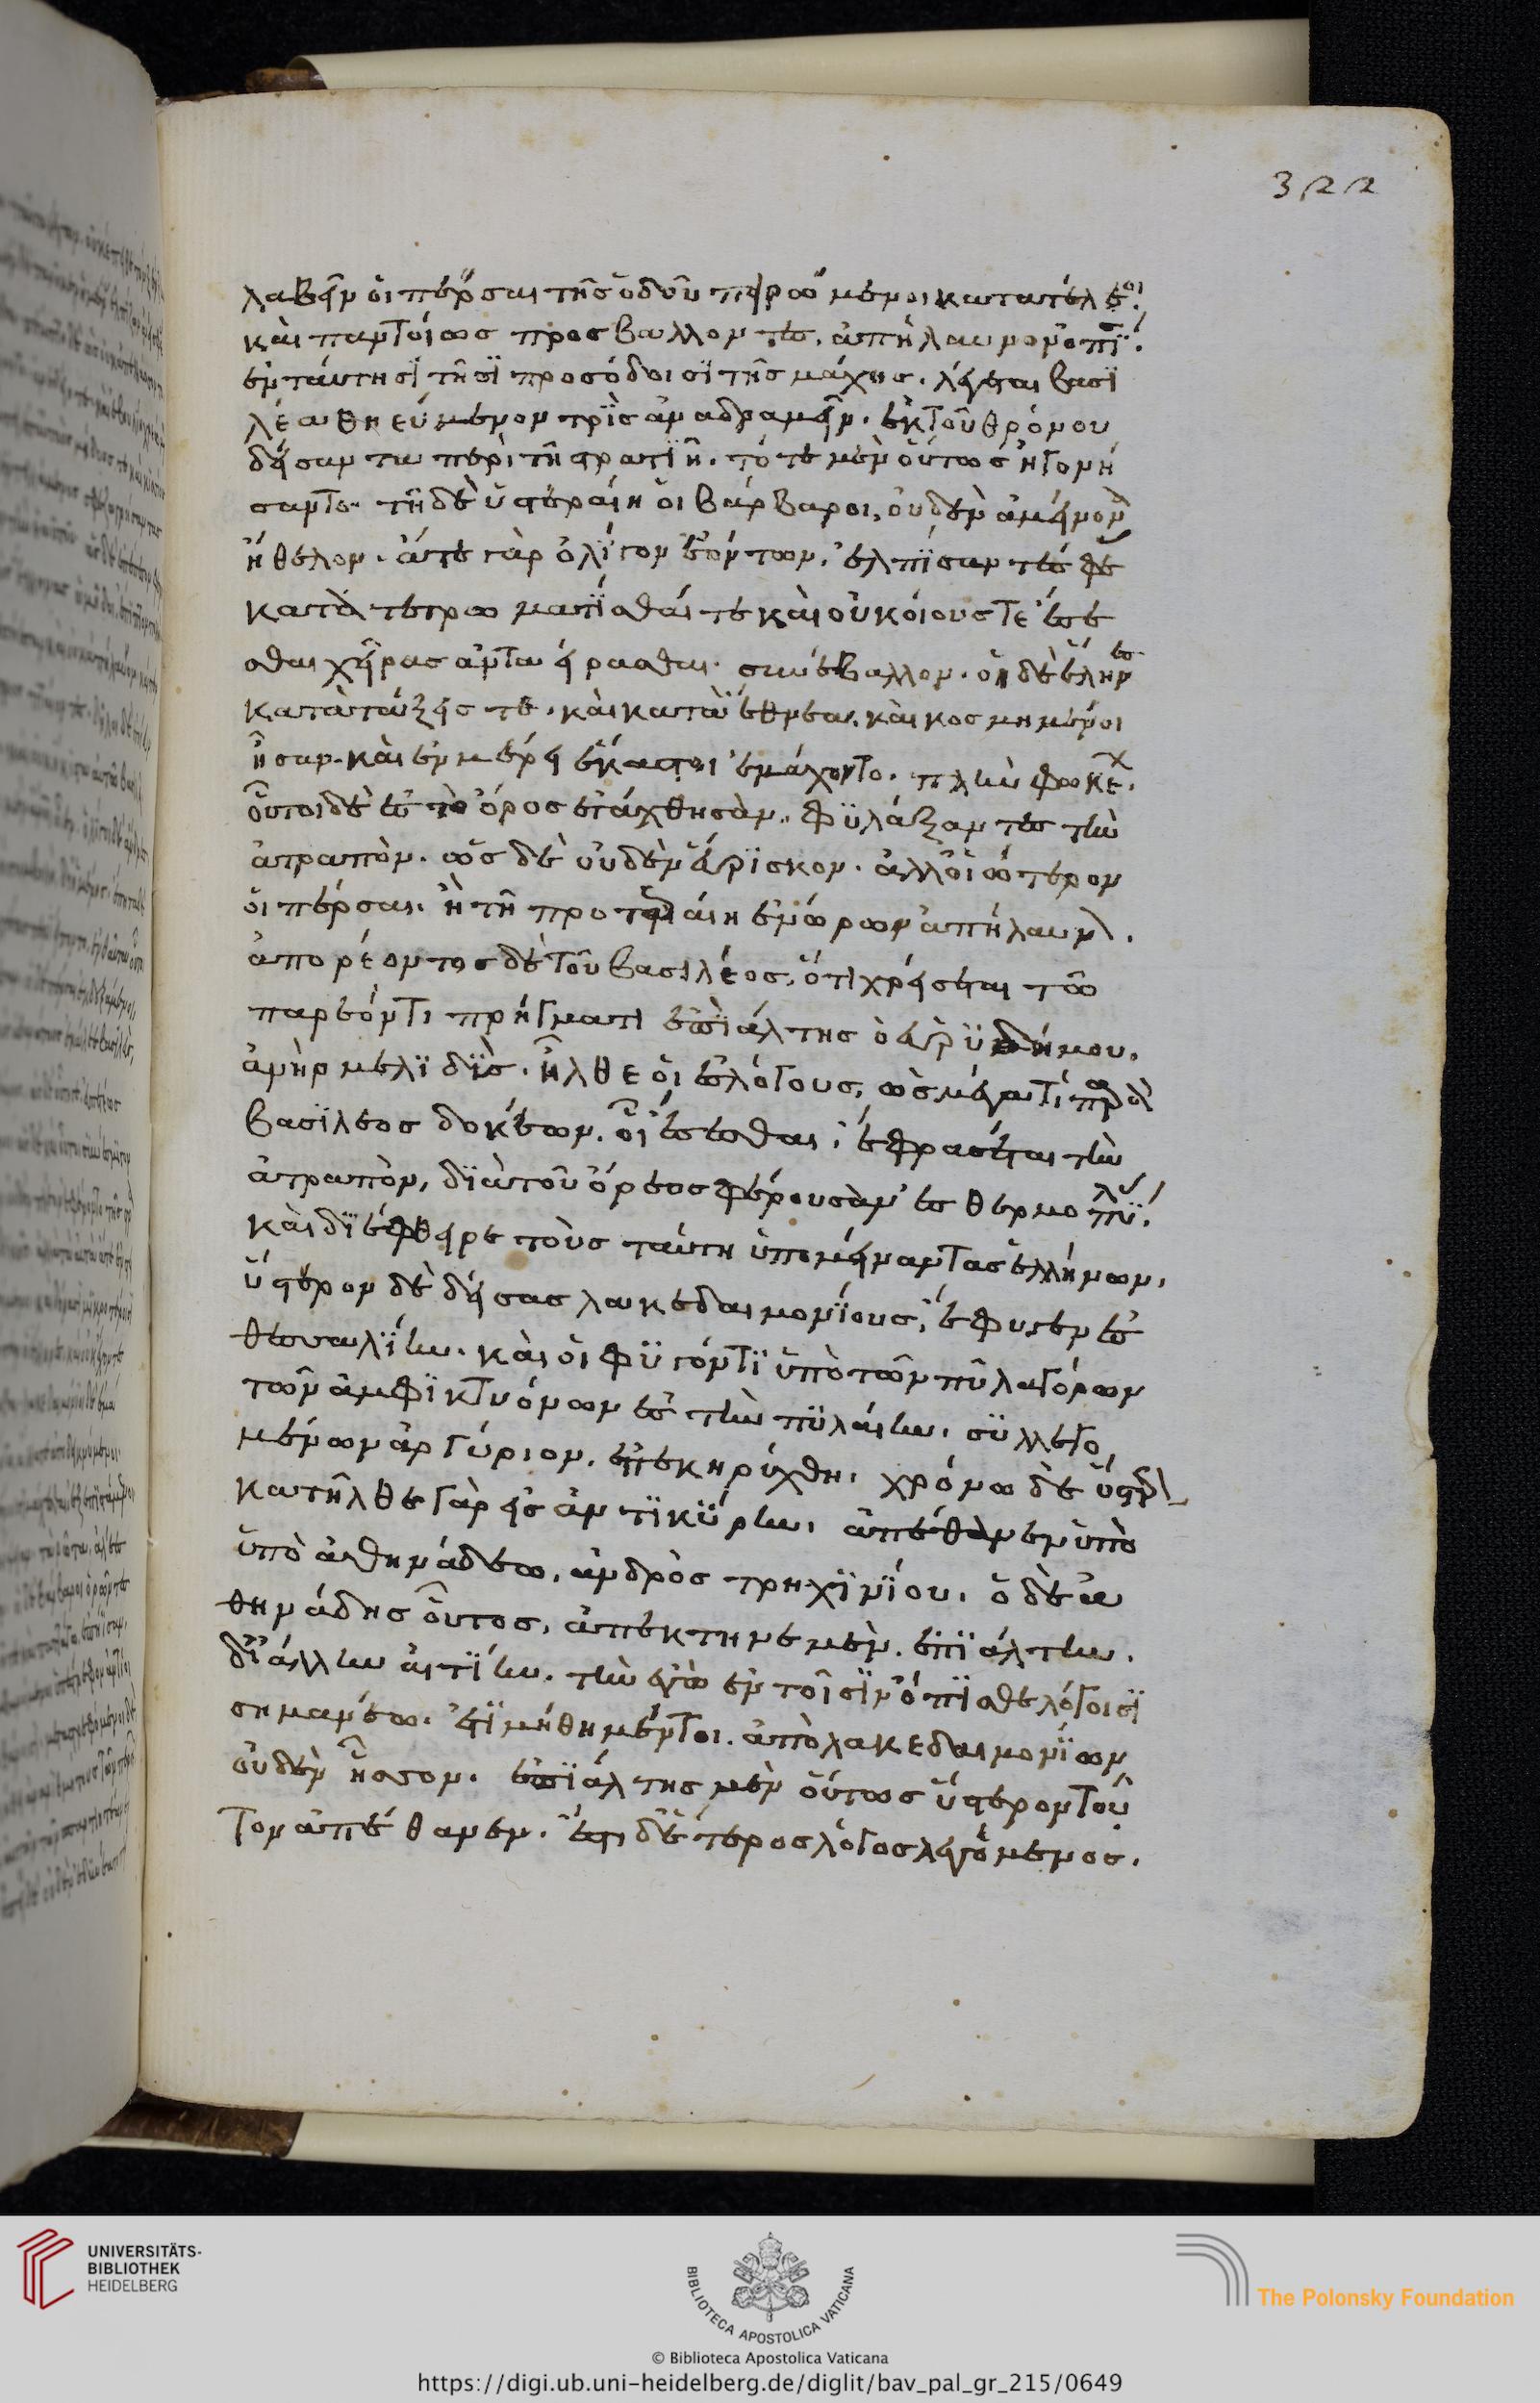 322
λαβεῖν οἱ πέρσαι τῆς ὁδοῦ πειρώμενοι κατὰ τέλεα.
καὶ παντοίως προσβάλλοντες, ἀπήλαυνον ὀπί.
ἐν ταύτησι τῆσι προσόδοισι τῆς μάχης. λέγεται βασι
λέα θηεύμενον τρὶς ἀναδραμεῖν. ἐκ τοῦ θρόνου
δείσαντα περὶ τῆ στρατιῆ. τότε μὲν οὕτως ἠγωνί
σαντο. τῆ δὲ ὑστεραίη οἱ βάρβαροι, οὐδὲν ἄμεινον
ἤθλεον. ἅτε γὰρ ὀλίγων ἐόντων. ἐλπίσαντές σφε
κατατετρωματίσθαί τε καὶ οὐκ οἵους τε ἔσε
σθαι χεῖρας ἀνταείρασθαι. συνέβαλλον. οἱ δὲ ἕλληνες
κατὰ τάξεις τε. καὶ κατὰ ἔθνεα. κεκοσμημένοι
ἦσαν. καὶ ἐν μέρει ἕκαστοι ἐμάχοντο. πλὴν φωκέ.
οὗτοι δὲ ἐς τὸ ὄρος ἐτάχθησαν. φυλάξαντες τὴν
ἀτραπόν. ὡς δὲ οὐδὲν εὕρισκον. ἀλλοιότερον
οἱ πέρσαι. ἢ τῆ προτεραίη ἐνώρων ἀπήλαυν.
ἀπορέοντος δὲ τοῦ βασιλέος, ὅτι χρήσεται τῶ
παρεόντι πρήγματι ἐπιάλτης ὁ εὐρυδήμου.
ἀνὴρ μηλιεύς. ἦλθέ οἱ ἐς λόγους, ὡς μέγα τι παρὰ
βασιλέος δοκέων. οἴσεσθαι. ἔφρασέ τε τὴν
ἀτραπόν, διὰ τοῦ ὄρεος φέρουσαν ἐς θερμοπύ.
καὶ διέφθειρε τοὺς ταύτη ὑπομείναντας ἑλλήνων.
ὕστερον δὲ δείσας λακεδαιμονίους, ἔφυγεν ἐς
θεσσαλίην. καί οἱ φυγόντι ὑπὸ τῶν πυλαγόρων
τῶν ἀμφικτυόνων ἐς τὴν πυλαίην. συλλεγο
μένων ἀργύριον. ἐπεκηρύχθη. χρόνω δὲ ὕστερον
κατῆλθε γὰρ ἐς ἀντικύρην, ἀπέθανεν ὑπὸ
ὑπὸ ἀθηνάδεω, ἀνδρὸς τρηχινίου. ὁ δὲ ἀ
θηνάδης οὗτος, ἀπέκτεινε μὲν. ἐπιάλτην.
δι' ἄλλην αἰτίην. τὴν ἐγὼ ἐν τοῖσιν ὄπισθε λόγοισι
σημανέω. ἐτιμήθη μέντοι. ἀπὸ λακεδαιμονίων
οὐδὲν ἧσσον. ἐπιάλτης μὲν οὕτως ὕστερον τού
των ἀπέθανεν. ἔστι δὲ ἕτερος λόγος λεγόμενος.
UNIVERSITÄTS-
BIBLIOTHEK
HEIDELBERG
BIBLIOTECA APOSTOLICA VATICANA
The Polonsky Foundation
© Biblioteca Apostolica Vaticana
https://digi.ub.uni-heidelberg.de/diglit/bav_pal_gr_215/0649